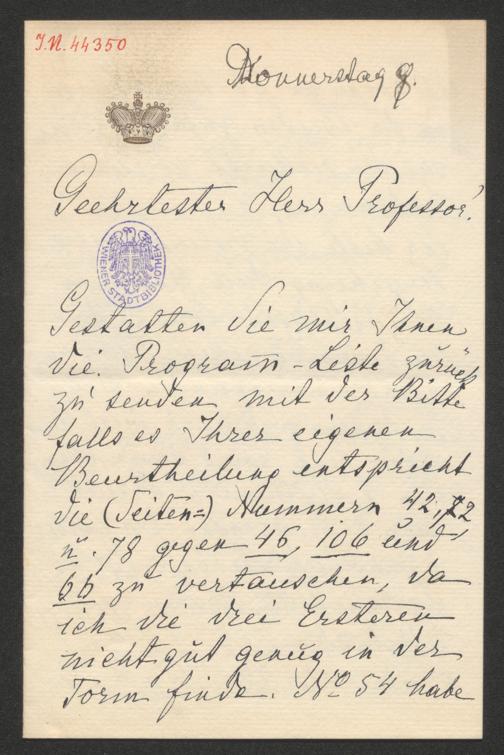 I.N. 44350
Donnerstag 8.
Geehrtester Herr Professor!
WIENER STADTBIBLIOTHEK
Gestatten Sie mir Ihnen
die Program-Liste zurück
zu senden mit der Bitte
falls es Ihrer eigenen
Beurtheilung entspricht
die (Seiten=) Nummern 42, 72
u. 78 gegen 46, 106 und
66 zu vertauschen, da
ich die drei Ersteren
nicht gut genug in der
Form finde. No 54 habe